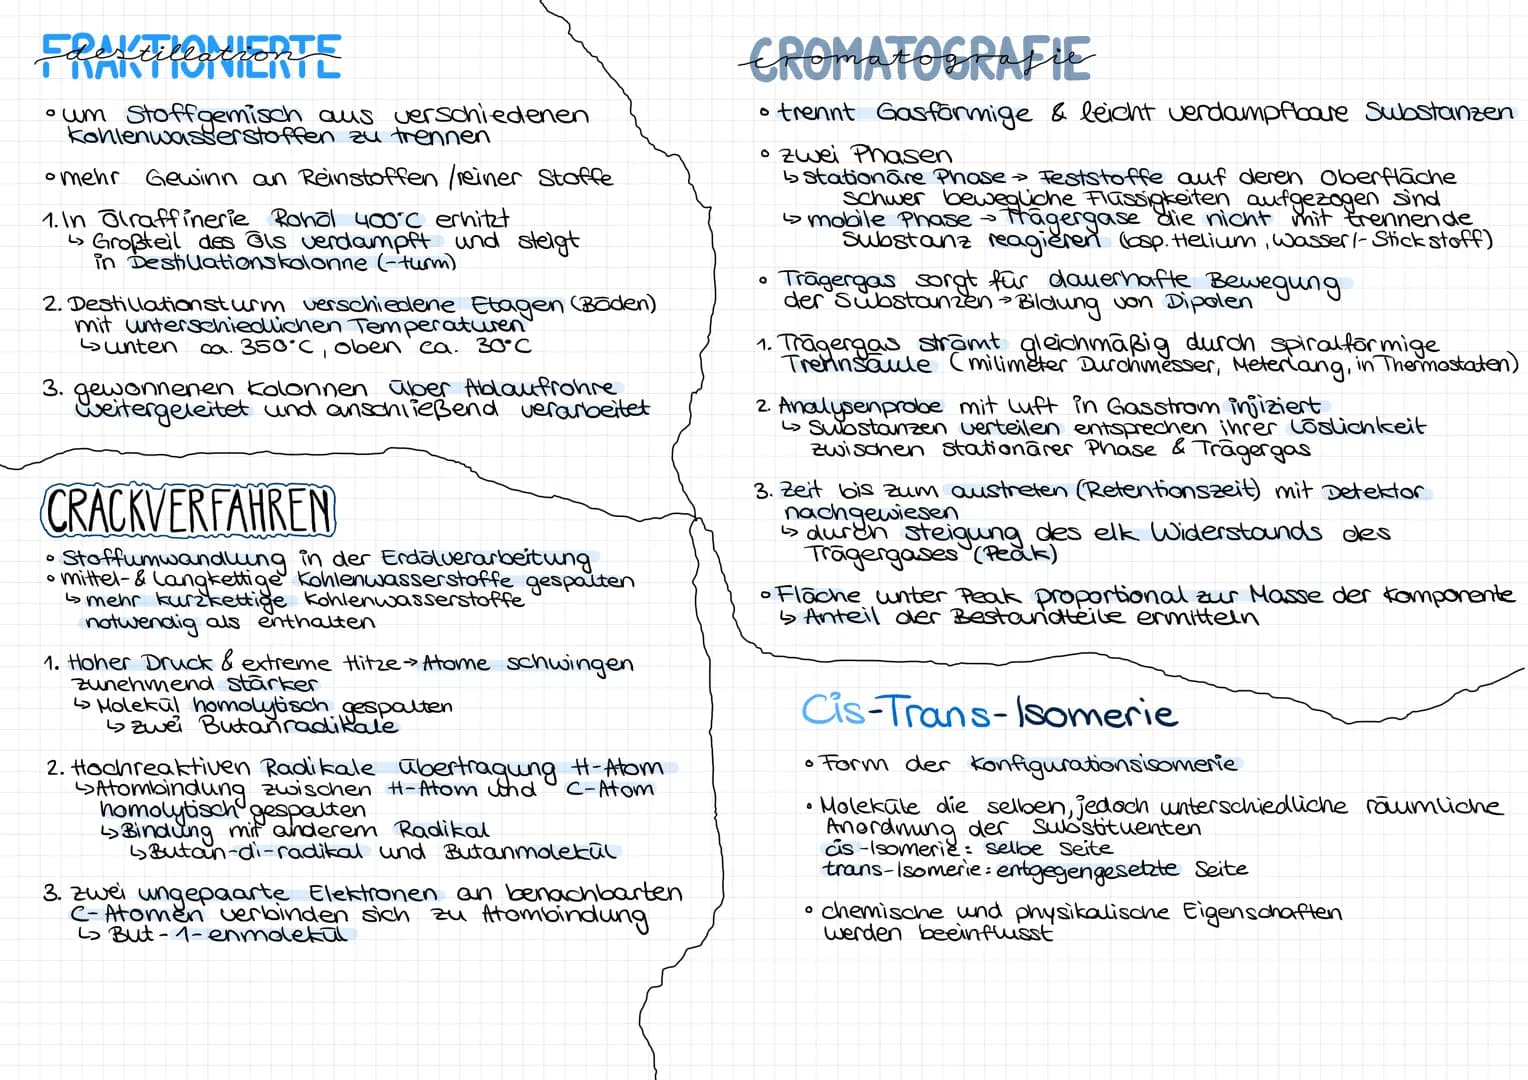 FRAKTIONIERTE
destillation
• um Stoffgemisch aus verschiedenen
Kohlenwasserstoffen zu trennen
• mehr Gewinn an Reinstoffen / reiner Stoffe
1. In Ölraffinerie Rohöl 400°C erhitzt
↳ Großteil des Öls verdampft und steigt
in Destillationskolonne (-turm)
2. Destillationsturm verschiedene Etagen (Böden)
mit unterschiedlichen Temperaturen
↳ unten ca. 350°C, oben ca. 30°C
3. gewonnenen Kolonnen über Ablaufrohre
weitergeleitet und anschließend verarbeitet
CRACKVERFAHREN
• Stoffumwandlung in der Erdölverarbeitung
• mittel- & langkettige Kohlenwasserstoffe gespalten
↳ mehr kurzkettige Kohlenwasserstoffe
notwendig als enthalten
1. Hoher Druck & extreme Hitze → Atome schwingen
zunehmend stärker
↳ Molekül homolytisch gespalten
↳ zwei Butanradikale
2. Hochreaktiven Radikale Übertragung H-Atom
↳ Atombindung zwischen H-Atom und C-Atom
homolytisch gespalten
↳ Bindung mit anderem Radikal
↳ Butan-di-radikal und Butanmolekül
3. zwei ungepaarte Elektronen an benachbarten
C-Atomen verbinden sich zu Atombindung
↳ But-1-enmolekül
CROMATOGRAFIE
cromatografie
• trennt Gasförmige & leicht verdampfbare Substanzen
• zwei Phasen
↳ stationäre Phase → Feststoffe auf deren Oberfläche
schwer bewegliche Flüssigkeiten aufgezogen sind
↳ mobile Phase → Trägergase die nicht mit trennende
Substanz reagieren (bsp. Helium, Wasser/- Stickstoff)
• Trägergas sorgt für dauerhafte Bewegung
der Substanzen → Bildung von Dipolen
1. Trägergas strömt gleichmäßig durch spiralförmige
Trennsäule (milimeter Durchmesser, Meterlang, in Thermostaten)
2. Analysenprobe mit Luft in Gasstrom injiziert
↳ Substanzen verteilen entsprechen ihrer Löslichkeit
zwischen stationärer Phase & Trägergas
3. Zeit bis zum austreten (Retentionszeit) mit Detektor
nachgewiesen
↳ durch steigung des elk Widerstands des
Trägergases (Peak)
• Fläche unter Peak proportional zur Masse der Komponente
↳ Anteil der Bestandteile ermitteln
Cis-Trans-Isomerie
• Form der Konfigurationsisomerie
• Moleküle die selben, jedoch unterschiedliche räumliche
Anordnung der Substituenten
cis-Isomerie: selbe Seite
trans-Isomerie: entgegengesetzte Seite
• chemische und physikalische Eigenschaften
werden beeinflusst